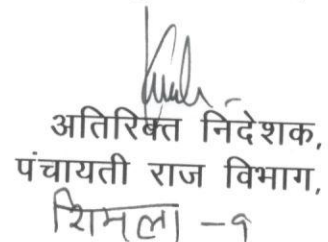 अतिरिक्त निदेशक,
पंचायती राज विभाग,
शिमला -9